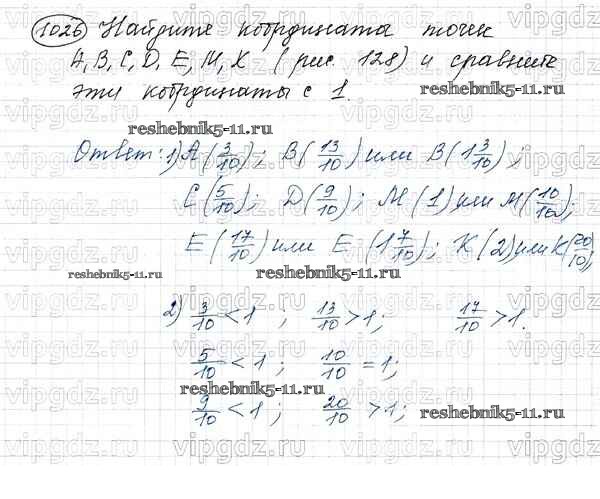 1026 Найдите координаты точек
A, B, C, D, E, M, K (рис. 128) и сравните
эти координаты с 1.
reshebnik5-11.ru
Ответ: 1) A(3/10); B(13/10) или B(1 3/10);
C(5/10); D(9/10); M(1) или M(10/10);
E(17/10) или E(1 7/10); K(2) или K(20/10);
reshebnik5-11.ru reshebnik5-11.ru
2) 3/10 < 1 ; 13/10 > 1; 17/10 > 1.
5/10 < 1 ; 10/10 = 1;
reshebnik5-11.ru
9/10 < 1 ; 20/10 > 1; reshebnik5-11.ru
vipgdz.ru